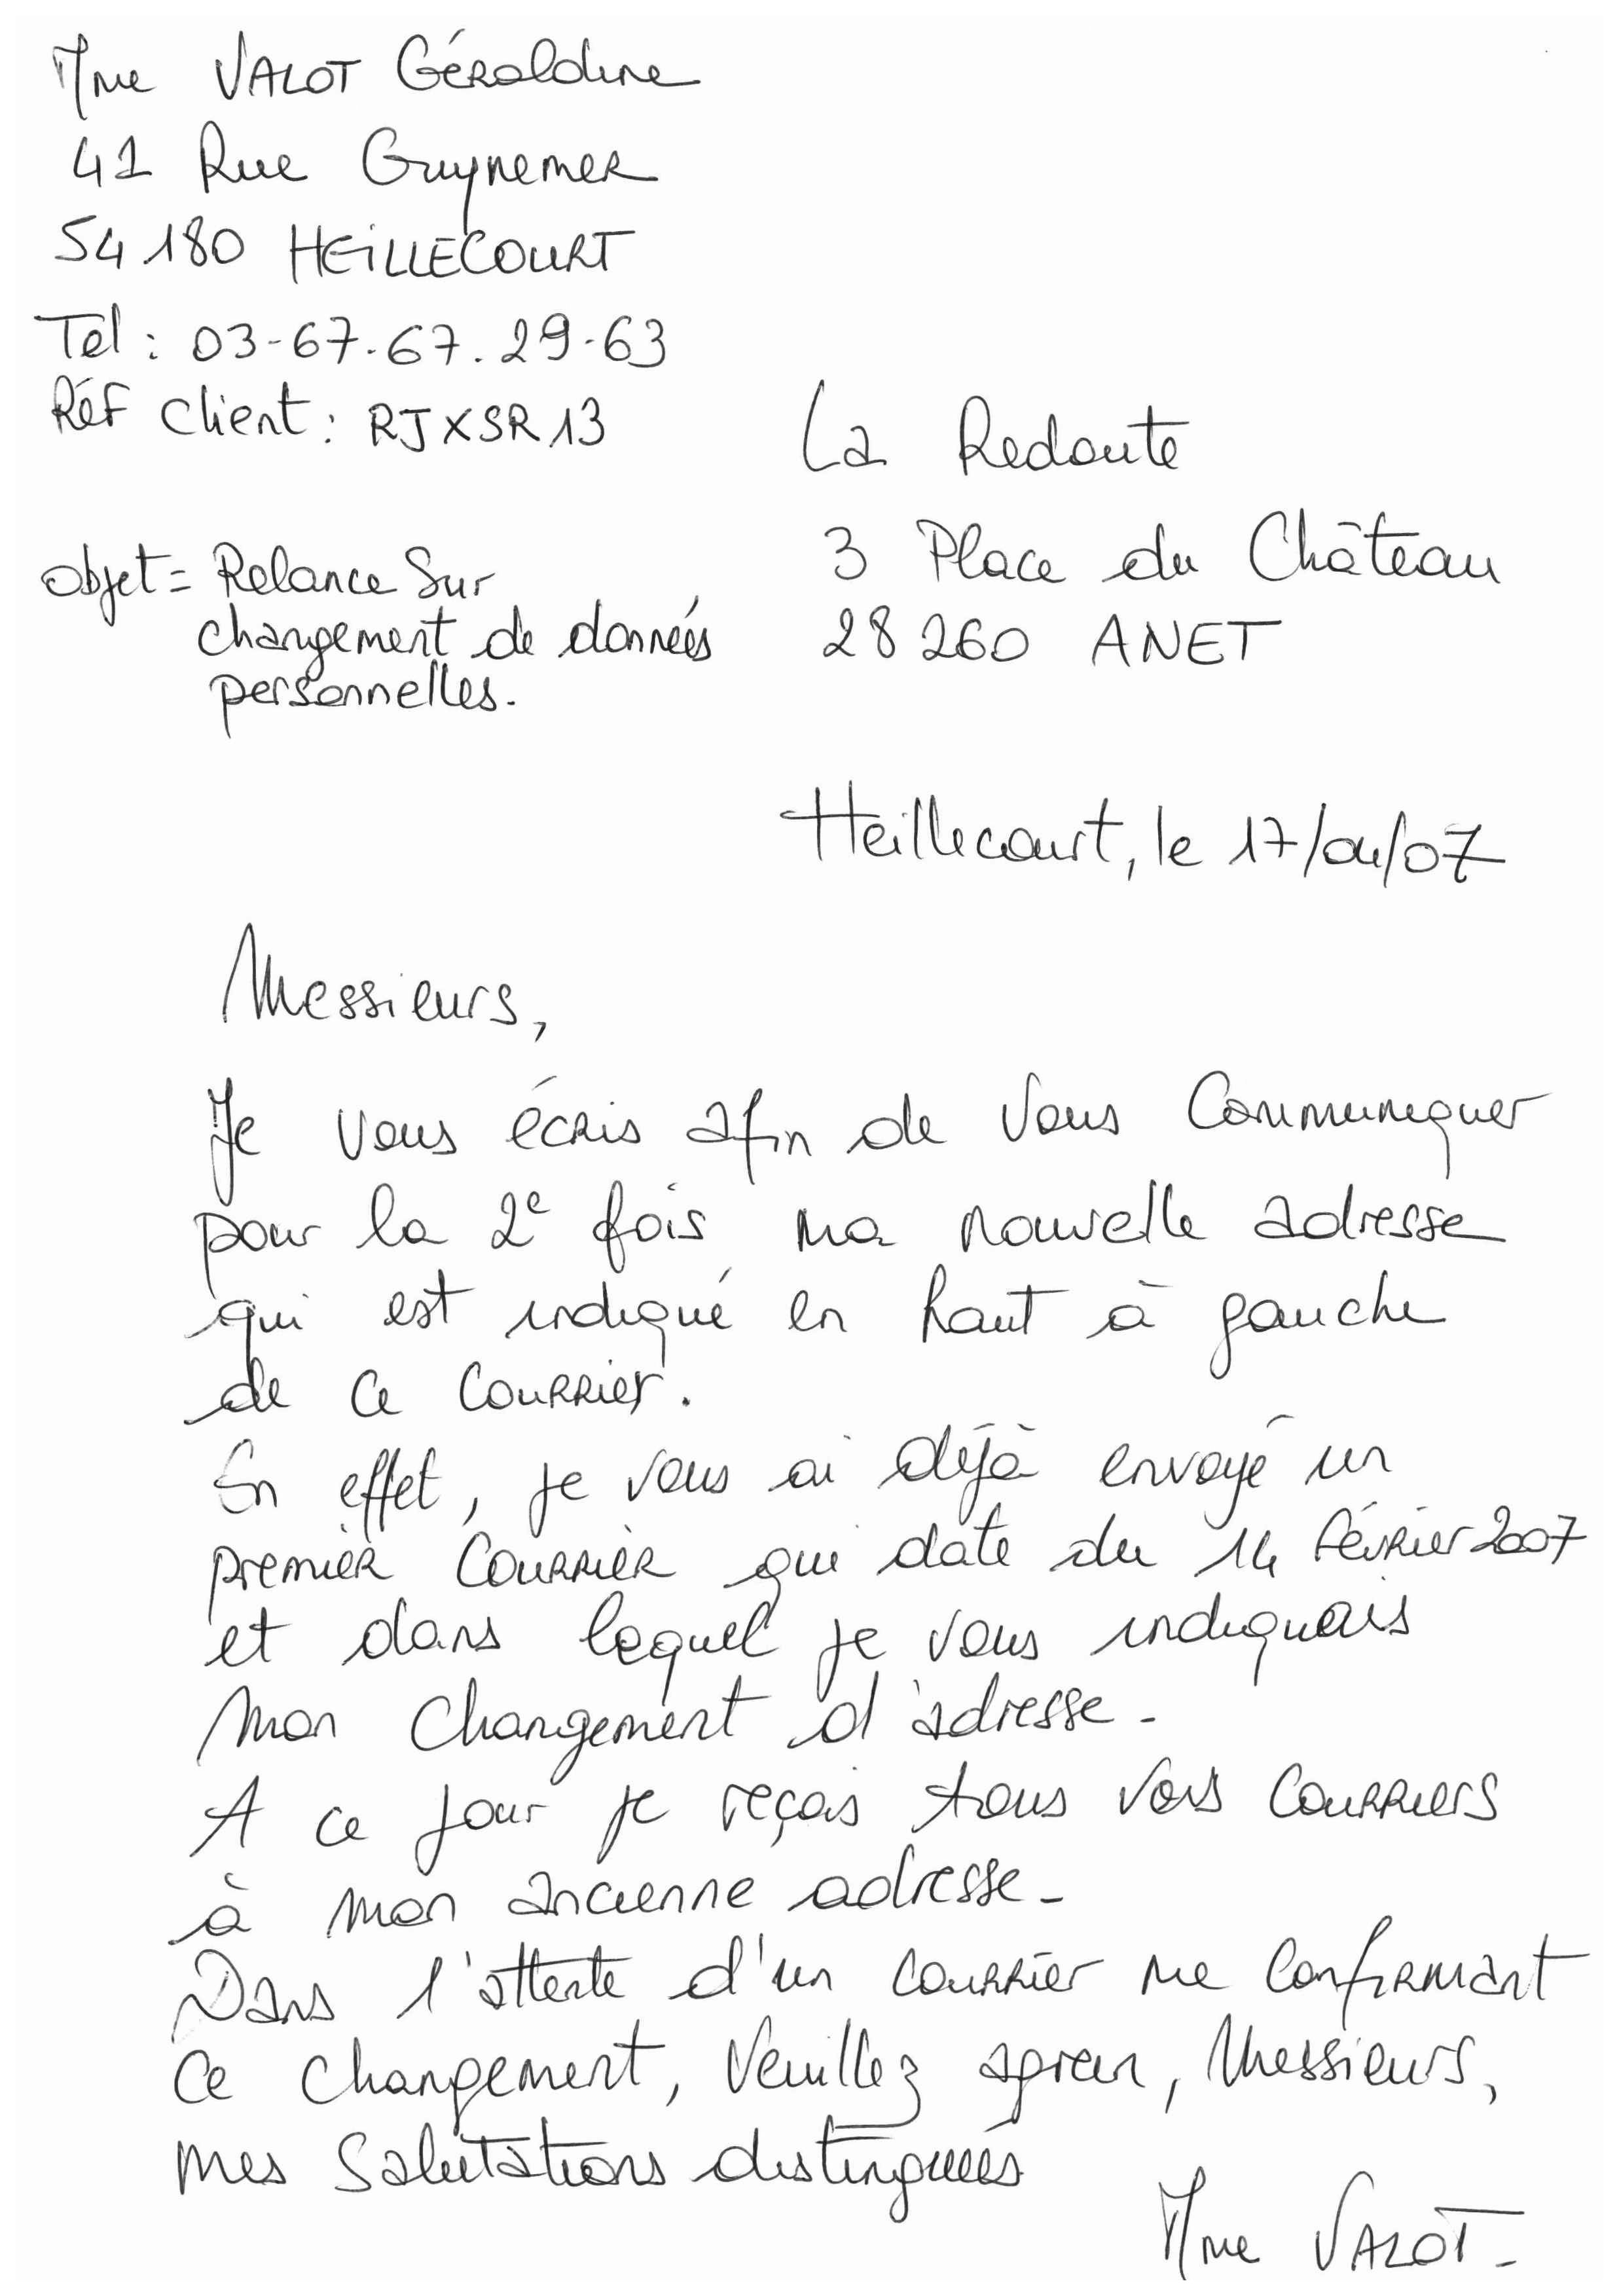 Mme VALOT Géraldine
41 Rue Guynemer
54180 HEILLECOURT
Tél : 03-67.67.29.63
Réf client : RJXSR13
La Redoute
3 Place du Château
28260 ANET
objet = Relance Sur
changement de données
personnelles.
Heillecourt, le 17/04/07
Messieurs,
Je vous écris afin de vous Communiquer
pour la 2e fois ma nouvelle adresse
qui est indiqué en haut à gauche
de ce courrier.
En effet, je vous ai déjà envoyé un
premier courrier qui date du 14 février 2007
et dans lequel je vous indiquais
mon changement d'adresse.
A ce jour je reçois tous vos courriers
à mon ancienne adresse.
Dans l'attente d'un courrier me confirmant
ce changement, veuillez agréer, Messieurs,
mes salutations distinguées
Mme VALOT.